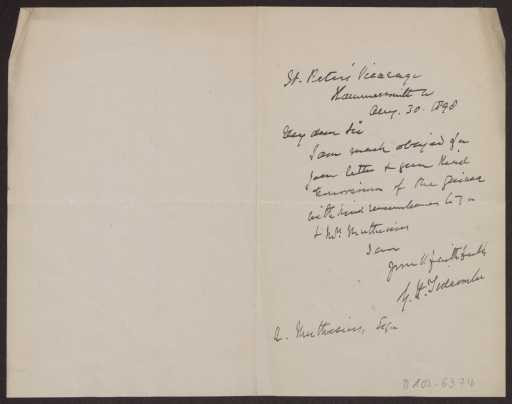 St. Peter's Vicarage
Hammersmith W
Aug. 30. 1898
My dear Sir
I am much obliged for
your letter & your kind
of the
with kind remembrances to you
& Mrs. Muthesius
I am
yours faithfully
G. H. Tidcombe
H. Muthesius, Esq.
D 102-6374